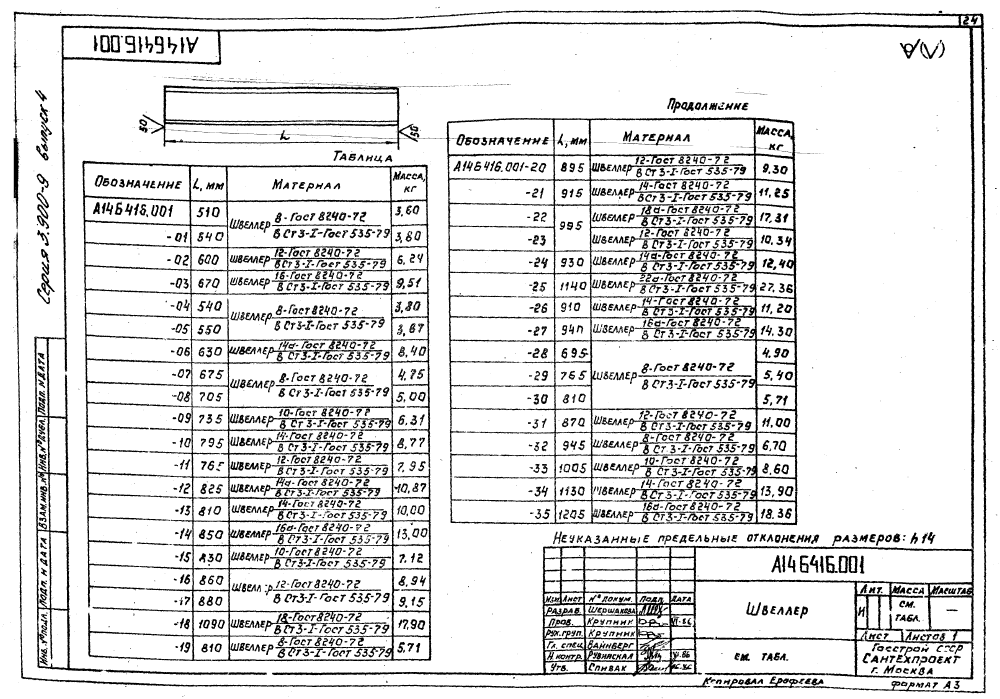 124
А14Б416.001
Серия 3.900-9 выпуск 4
√(√)
50 L 50
Таблица
Обозначение L, мм Материал Масса, кг
А14Б416.001 510 Швеллер 8-Гост 8240-72 / В Ст3-I-Гост 535-79 3,60
-01 540 3,80
-02 600 Швеллер 12-Гост 8240-72 / В Ст3-I-Гост 535-79 6,24
-03 670 Швеллер 16-Гост 8240-72 / В Ст3-I-Гост 535-79 9,51
-04 540 Швеллер 8-Гост 8240-72 / В Ст3-I-Гост 535-79 3,80
-05 550 3,87
-06 630 Швеллер 14а-Гост 8240-72 / В Ст3-I-Гост 535-79 8,40
-07 675 Швеллер 8-Гост 8240-72 / В Ст3-I-Гост 535-79 4,75
-08 705 5,00
-09 735 Швеллер 10-Гост 8240-72 / В Ст3-I-Гост 535-79 6,31
-10 795 Швеллер 14-Гост 8240-72 / В Ст3-I-Гост 535-79 8,77
-11 765 Швеллер 12-Гост 8240-72 / В Ст3-I-Гост 535-79 7,95
-12 825 Швеллер 14а-Гост 8240-72 / В Ст3-I-Гост 535-79 10,87
-13 810 Швеллер 14-Гост 8240-72 / В Ст3-I-Гост 535-79 10,00
-14 850 Швеллер 16а-Гост 8240-72 / В Ст3-I-Гост 535-79 13,00
-15 830 Швеллер 10-Гост 8240-72 / В Ст3-I-Гост 535-79 7.12
-16 860 Швеллер 12-Гост 8240-72 / В Ст3-I-Гост 535-79 8,94
-17 880 9,15
-18 1090 Швеллер 18-Гост 8240-72 / В Ст3-I-Гост 535-79 17,90
-19 810 Швеллер 8-Гост 8240-72 / В Ст3-I-Гост 535-79 5.71
Продолжение
Обозначение L, мм Материал Масса, кг
А14Б416.001-20 895 Швеллер 12-Гост 8240-72 / В Ст3-I-Гост 535-79 9,30
-21 915 Швеллер 14-Гост 8240-72 / В Ст3-I-Гост 535-79 11,25
-22 995 Швеллер 18а-Гост 8240-72 / В Ст3-I-Гост 535-79 17,31
-23 Швеллер 12-Гост 8240-72 / В Ст3-I-Гост 535-79 10,34
-24 930 Швеллер 14а-Гост 8240-72 / В Ст3-I-Гост 535-79 12,40
-25 1140 Швеллер 22а-Гост 8240-72 / В Ст3-I-Гост 535-79 27,36
-26 910 Швеллер 14-Гост 8240-72 / В Ст3-I-Гост 535-79 11,20
-27 940 Швеллер 16а-Гост 8240-72 / В Ст3-I-Гост 535-79 14,30
-28 695 Швеллер 8-Гост 8240-72 / В Ст3-I-Гост 535-79 4,90
-29 765 5,40
-30 810 5,71
-31 870 Швеллер 12-Гост 8240-72 / В Ст3-I-Гост 535-79 11,00
-32 945 Швеллер 8-Гост 8240-72 / В Ст3-I-Гост 535-79 6,70
-33 1005 Швеллер 10-Гост 8240-72 / В Ст3-I-Гост 535-79 8,60
-34 1130 Швеллер 14-Гост 8240-72 / В Ст3-I-Гост 535-79 13,90
-35 1205 Швеллер 16а-Гост 8240-72 / В Ст3-I-Гост 535-79 18.36
Неуказанные предельные отклонения размеров: h14
А14Б416.001
Изм Лист № докум. Подп. Дата
Разраб. Шершакова
Пров. Крупник VI-86
Рук.груп. Крупник
Гл. спец. Вайнберг
Н.контр. Рувинская VI-86
Утв. Спивак
Швеллер
ЕМ. ТАБЛ.
Лит. Масса Масштаб
И СМ. ТАБЛ. —
Лист Листов 1
Госстрой СССР
Сантехпроект
г. Москва
Копировал Ерофеева формат А3
Инв. № подл. Подп. и дата Взам. инв. № Инв. № дубл. Подп. и дата